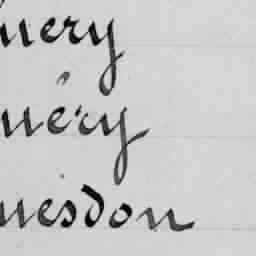 uery
uéry
uesdon